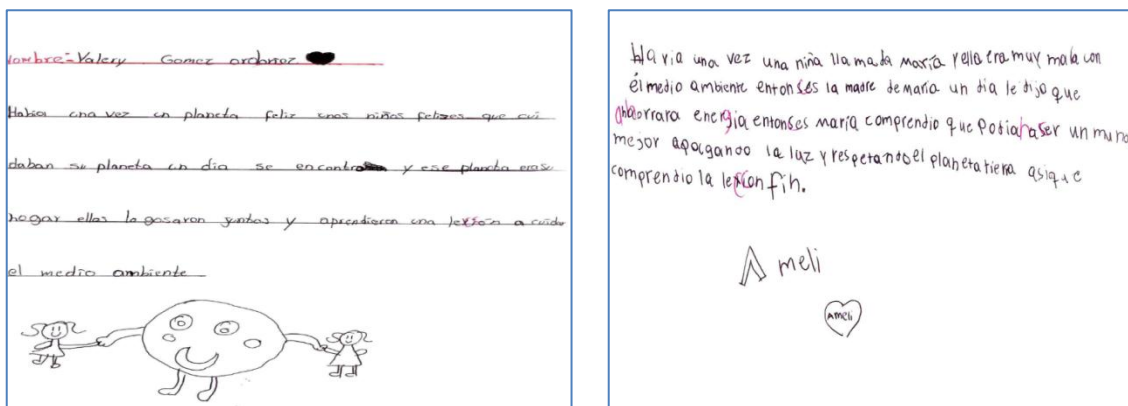 Nombre = Valery Gomez ordoñez
Habia una vez un planeta feliz unos niños felizes que cui
daban su planeta un dia se encontro y ese planeta era su
hogar ellos lo gosaron juntos y aprendieron una lexsión a cuidar
el medio ambiente
Havia una vez una niña llamada maría y ella era muy mala con
él medio ambiente entonses la madre de maria un dia le dijo que
ahorrara energia entonses maría comprendio que Podia haser un mund
mejor apagando la luz y respetando el planeta tierra asique
comprendio la lexion fin.
Ameli
Ameli